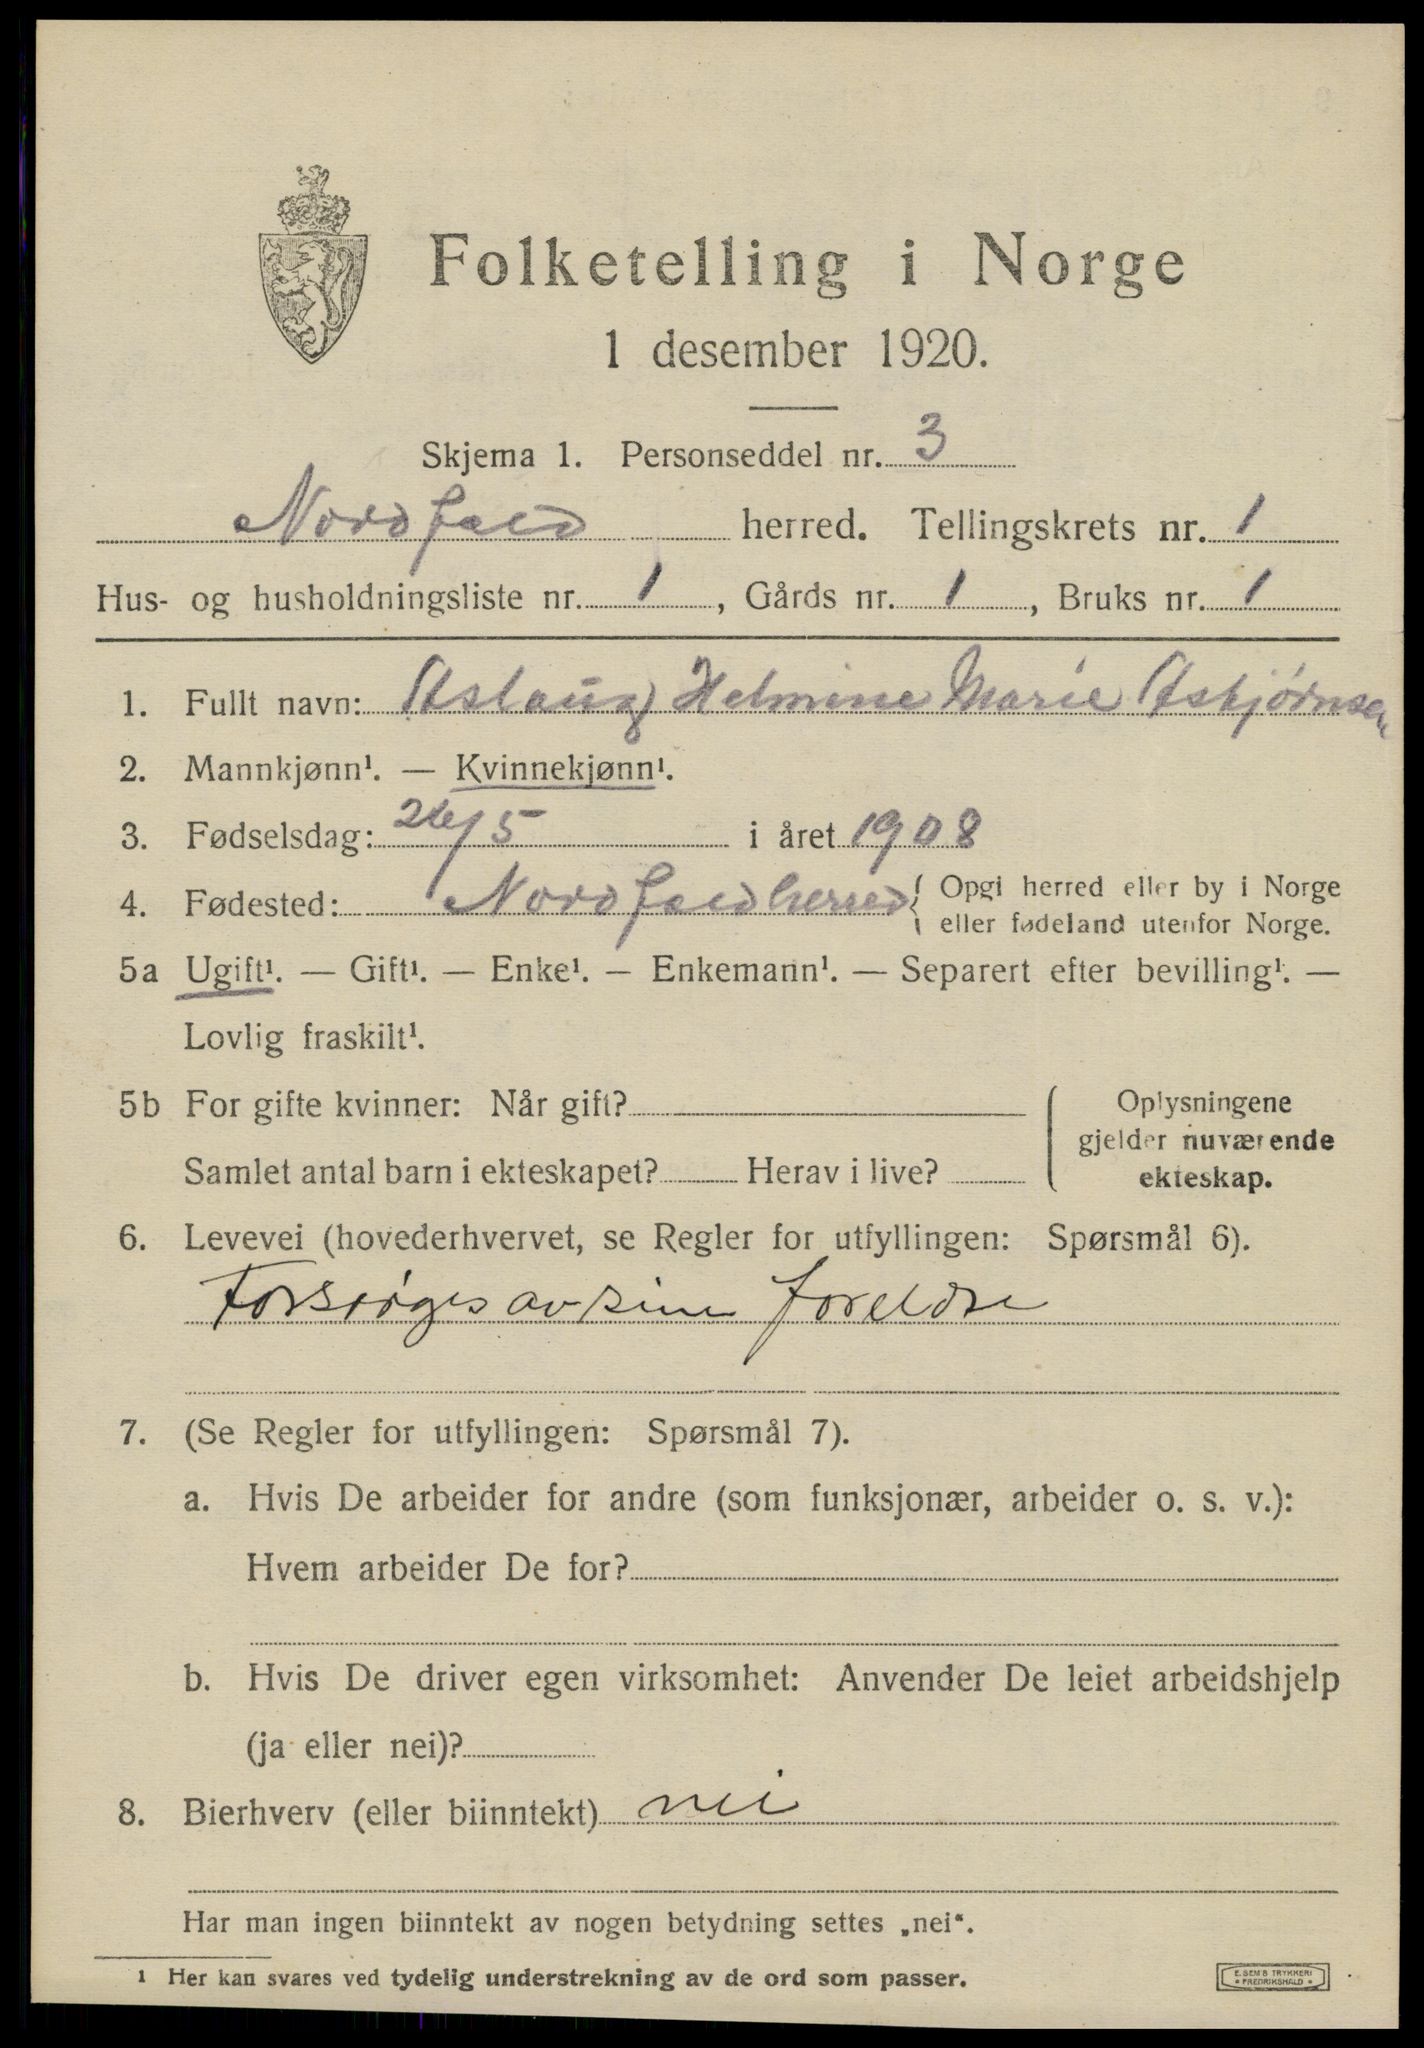 Folketelling i Norge
1 desember 1920.
Skjema 1. Personseddel nr. 3
Nordfold herred. Tellingskrets nr. 1
Hus- og husholdningsliste nr. 1, Gårds nr. 1, Bruks nr. 1
1. Fullt navn: Aslaug Helmine Marie Asbjørnsen
2. Mannkjønn¹. — Kvinnekjønn¹.
3. Fødselsdag: 26/5 i året 1908
4. Fødested: Nordfold herred { Opgi herred eller by i Norge
eller fødeland utenfor Norge.
5a Ugift¹. — Gift¹. — Enke¹. — Enkemann¹. — Separert efter bevilling¹. —
Lovlig fraskilt¹.
5b For gifte kvinner: Når gift?
Samlet antal barn i ekteskapet? Herav i live?
Oplysningene
gjelder nuværende
ekteskap.
6. Levevei (hovederhvervet, se Regler for utfyllingen: Spørsmål 6).
Forsørges av sine foreldre
7. (Se Regler for utfyllingen: Spørsmål 7).
a. Hvis De arbeider for andre (som funksjonær, arbeider o. s. v.):
Hvem arbeider De for?
b. Hvis De driver egen virksomhet: Anvender De leiet arbeidshjelp
(ja eller nei)?
8. Bierhverv (eller biinntekt) nei
Har man ingen biinntekt av nogen betydning settes „nei“.
1 Her kan svares ved tydelig understrekning av de ord som passer.
E. SEM'S TRYKKERI
* FREDRIKSHALD *